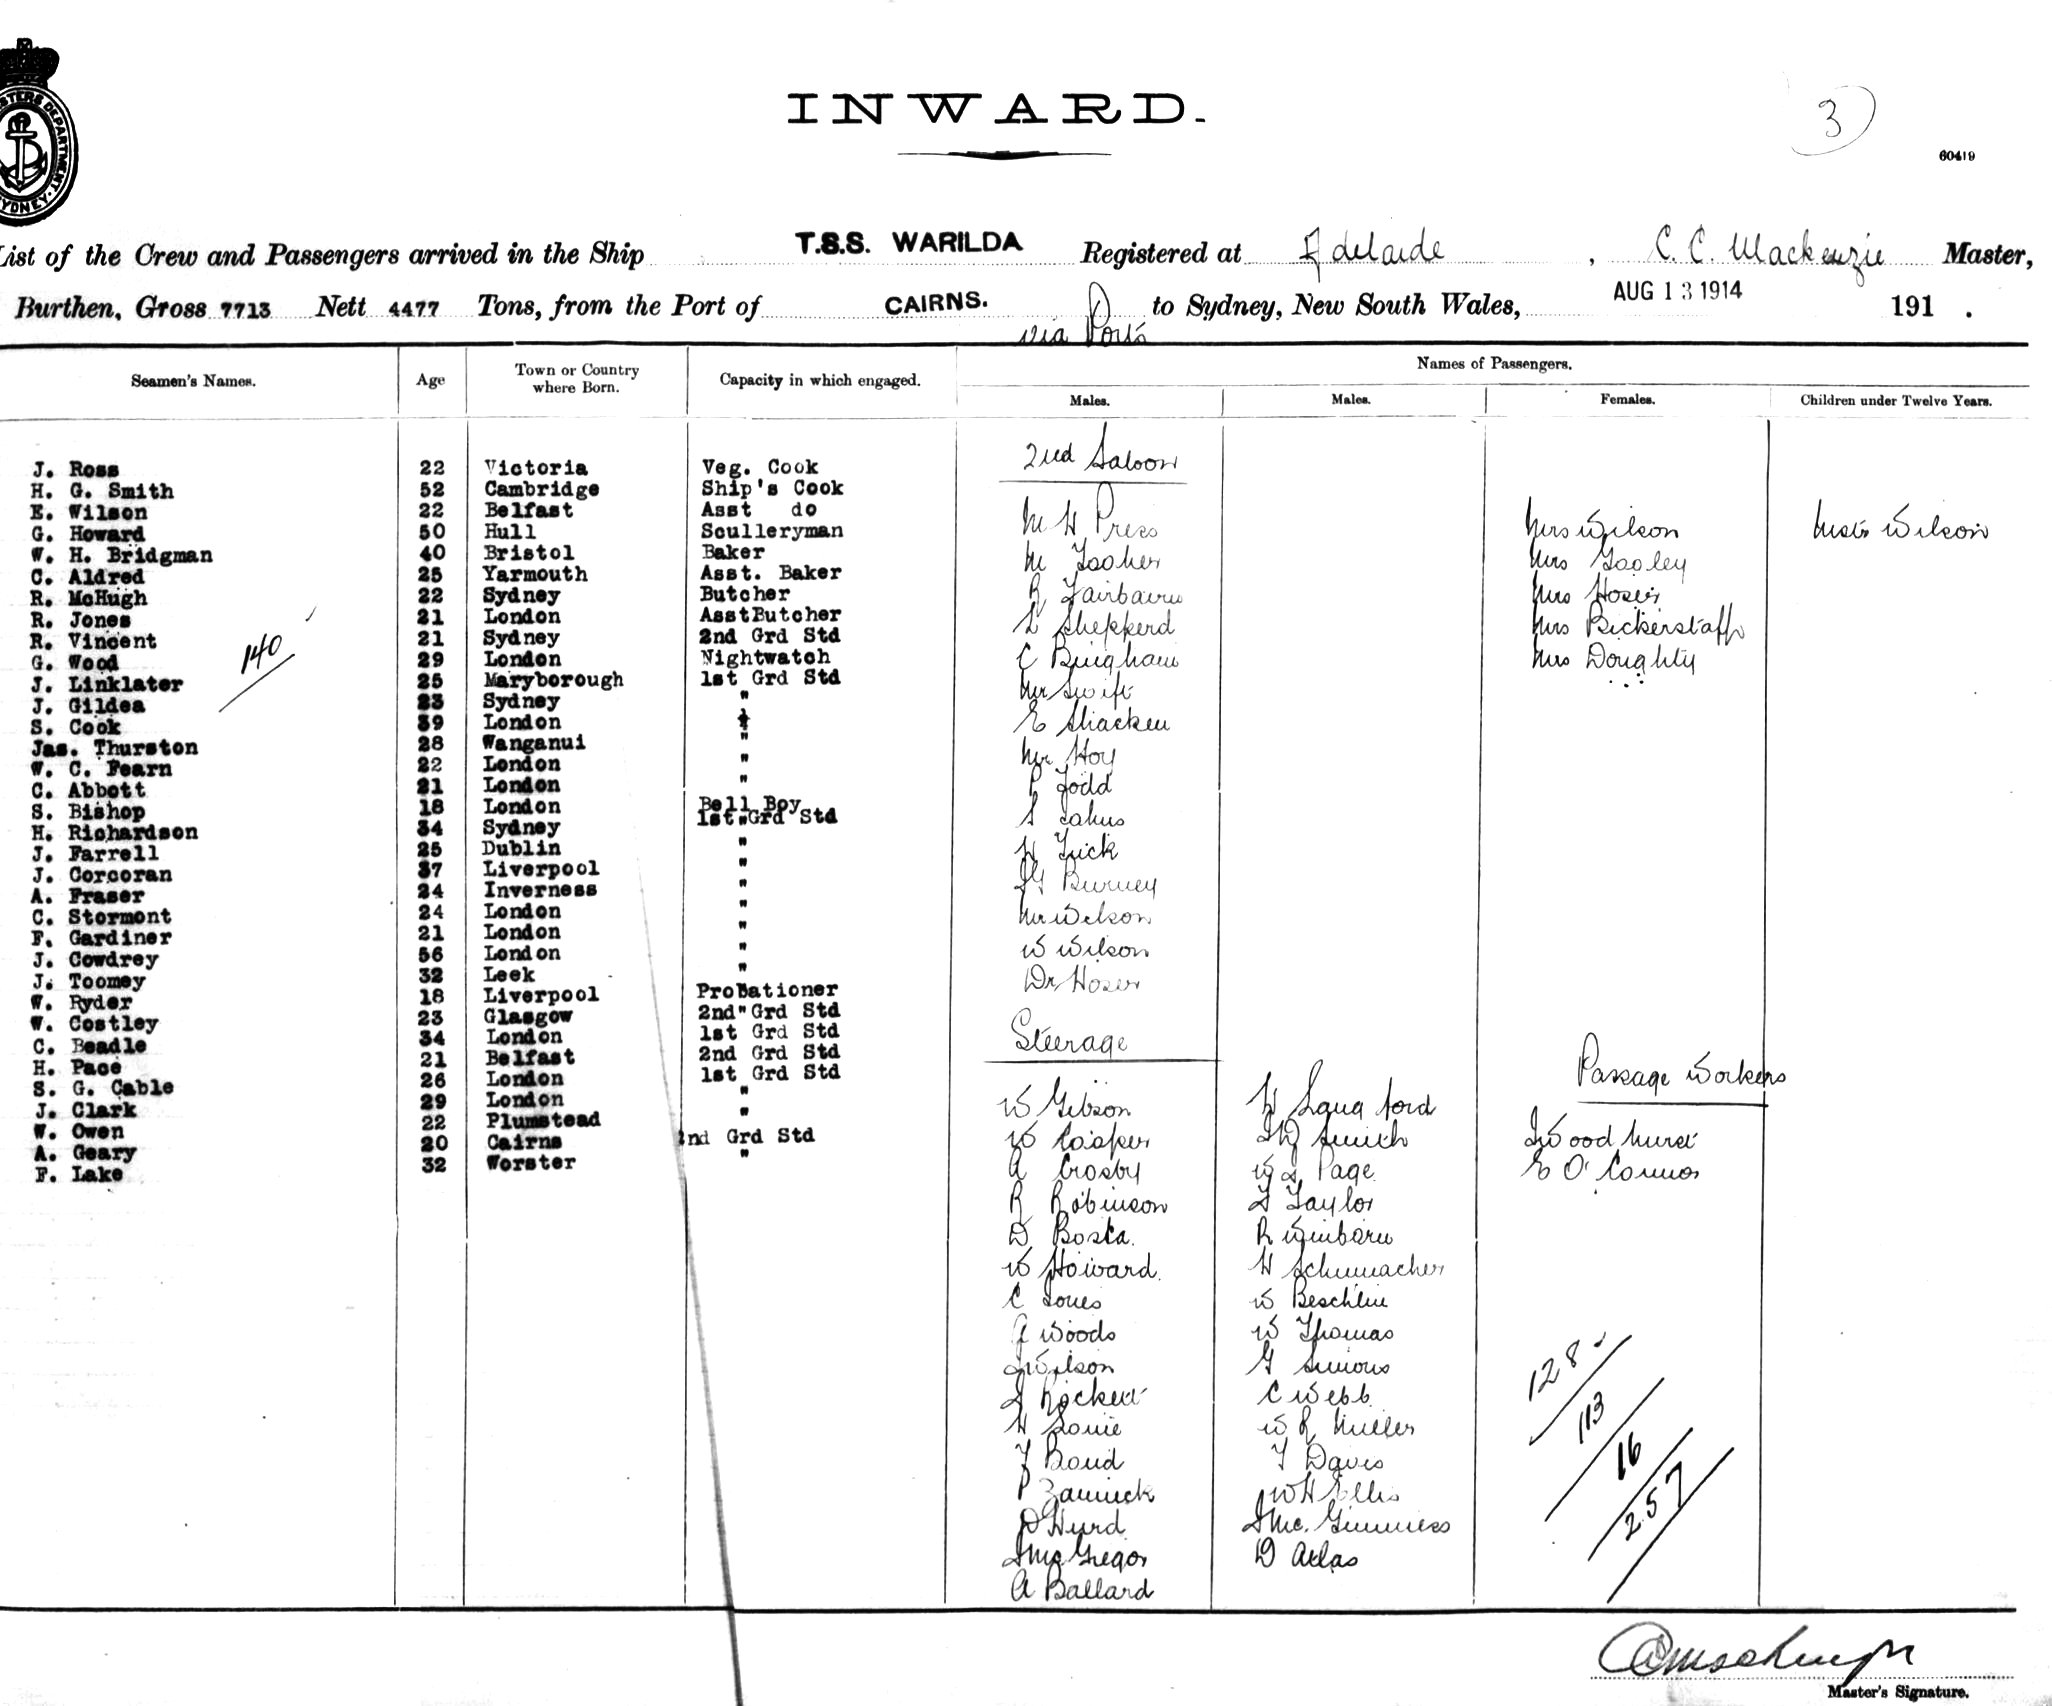 INWARD.
3
60419
SYDNEY
List of the Crew and Passengers arrived in the Ship T.S.S. WARILDA Registered at Adelaide, C. C. Mackenzie Master,
Burthen, Gross 7713 Nett 4477 Tons, from the Port of CAIRNS. via Ports to Sydney, New South Wales, AUG 13 1914 191 .
Seamen's Names. Age Town or Country where Born. Capacity in which engaged. Names of Passengers.
Males. Males. Females. Children under Twelve Years.
J. Ross 22 Victoria Veg. Cook
H. G. Smith 52 Cambridge Ship's Cook
E. Wilson 22 Belfast Asst do
G. Howard 50 Hull Sculleryman
W. H. Bridgman 40 Bristol Baker
C. Aldred 25 Yarmouth Asst. Baker
R. McHugh 22 Sydney Butcher
R. Jones 21 London AsstButcher
R. Vincent 21 Sydney 2nd Grd Std
G. Wood 29 London Nightwatch
J. Linklater 25 Maryborough 1st Grd Std
J. Gildea 23 Sydney "
S. Cook 39 London "
Jas. Thurston 28 Wanganui "
W. C. Fearn 22 London "
C. Abbott 21 London "
S. Bishop 18 London Bell Boy
H. Richardson 34 Sydney 1st Grd Std
J. Farrell 25 Dublin "
J. Corcoran 37 Liverpool "
A. Fraser 24 Inverness "
C. Stormont 24 London "
F. Gardiner 21 London "
J. Cowdrey 56 London "
J. Toomey 32 Leek "
W. Ryder 18 Liverpool Probationer
W. Costley 23 Glasgow 2nd" Grd Std
C. Beadle 34 London 1st Grd Std
H. Pace 21 Belfast 2nd Grd Std
S. G. Cable 26 London 1st Grd Std
J. Clark 29 London "
W. Owen 22 Plumstead "
A. Geary 20 Cairns 2nd Grd Std
F. Lake 32 Worster "
140
2nd Saloon
M H Press
M Tooher
R Fairbairn
L Shepperd
C Bingham
Mr Swift
E Shacken
Mr Hoy
P Todd
S
H Tuck
Burney
Mr Wilson
W Wilson
Dr Hoser
Steerage
W Gibson
W Cooper
A Crosby
R Robinson
D Bosta.
W Howard.
C Jones
A Woods
J Wilson
J Rockett
H Lowie
F Bond
P
D Hurd
J McGregor
A Ballard
H Langford
Smith
W J Page
J Taylor
R Winbarn
H Schumacher
W Beschlin
W Thomas
G Simons
C Webb
W R Muller
F Davis
W H Ellis
J Mc. Guinness
D Atlas
Mrs Wilson
Mrs Gooley
Mrs Hoser
Mrs Bickerstaff
Mrs Doughty
Passage Workers
J Woodhurst
E O'Connor
Mstr Wilson
128
113
16
257
Master's Signature.